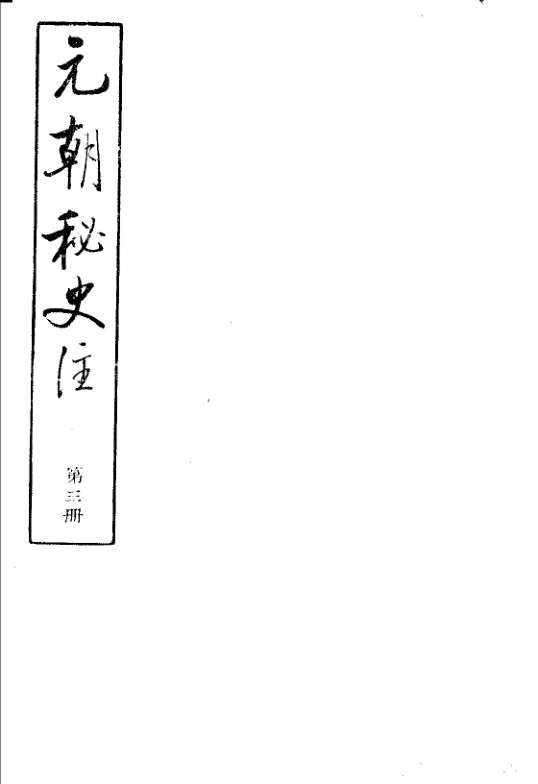 元朝秘史注
第三册